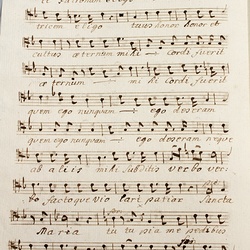 et Patronam eligo
tricem eligo tuus honor et
cultus æternum mihi cordi fuerit
æternum mihi cordi fuerit
quem ego nunquam ego deseram
quem ego nunquam ego deseram neque
ab aliis mihi subditis verbo ver
bo factoque vio lari patiar Sancta
Maria tu tu pia me pedibus